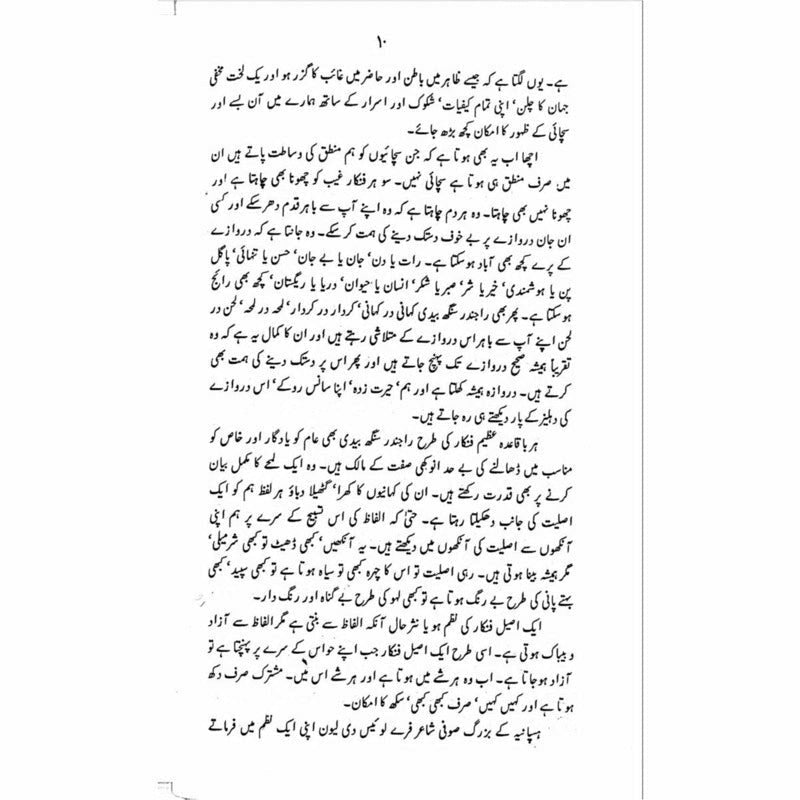 ۱۰
ہے۔ یوں لگتا ہے کہ جیسے ظاہر میں باطن اور حاضر میں غائب کا گزر ہو اور یک لخت مخفی
جہان کا چلن' اپنی تمام کیفیات' شکوک اور اسرار کے ساتھ ہمارے میں آن بسے اور
سچائی کے ظہور کا امکان کچھ بڑھ جائے۔
اچھا اب یہ بھی ہوتا ہے کہ جن سچائیوں کو ہم منطق کی وساطت پاتے ہیں ان
میں صرف منطق ہی ہوتا ہے سچائی نہیں۔ سو ہر فنکار غیب کو چھونا بھی چاہتا ہے اور
چھونا نہیں بھی چاہتا۔ وہ ہر دم چاہتا ہے کہ وہ اپنے آپ سے باہر قدم دھر سکے اور کسی
ان جان دروازے پر بے خوف دستک دینے کی ہمت کر سکے۔ وہ جانتا ہے کہ دروازے
کے پرے کچھ بھی آباد ہو سکتا ہے۔ رات یا دن' جان یا بے جان' حسن یا تنہائی' پاگل
پن یا ہوشمندی' خیر یا شر' صبر یا شکر' انسان یا حیوان' دریا یا ریگستان' کچھ بھی رائج
ہو سکتا ہے۔ پھر بھی راجندر سنگھ بیدی کہانی در کہانی' کردار در کردار' لمحہ در لمحہ' لحن در
لحن اپنے آپ سے باہر اس دروازے کے متلاشی رہتے ہیں اور ان کا کمال یہ ہے کہ وہ
تقریباً ہمیشہ صحیح دروازے تک پہنچ جاتے ہیں اور پھر اس پر دستک دینے کی ہمت بھی
کرتے ہیں۔ دروازہ ہمیشہ کھلتا ہے اور ہم' حیرت زدہ' اپنا سانس روکے' اس دروازے
کی دہلیز کے پار دیکھتے ہی رہ جاتے ہیں۔
ہر باقاعدہ عظیم فنکار کی طرح راجندر سنگھ بیدی بھی عام کو یادگار اور خاص کو
مناسب میں ڈھالنے کی بے حد انوکھی صفت کے مالک ہیں۔ وہ ایک لمحے کا مکمل بیان
کرنے پر بھی قدرت رکھتے ہیں۔ ان کی کہانیوں کا کھرا' گٹھیلا دباؤ ہر لفظ ہم کو ایک
اصلیت کی جانب دھکیلتا رہتا ہے۔ حتیٰ کہ الفاظ کی اس تسبیح کے سرے پر ہم اپنی
آنکھوں سے اصلیت کی آنکھوں میں دیکھتے ہیں۔ یہ آنکھیں' کبھی ڈھیٹ تو کبھی شرمیلی'
مگر ہمیشہ بینا ہوتی ہیں۔ رہی اصلیت تو اس کا چہرہ کبھی تو سیاہ ہوتا ہے تو کبھی سپید' کبھی
بہتے پانی کی طرح بے رنگ ہوتا ہے تو کبھی لہو کی طرح بے گناہ اور رنگ دار۔
ایک اصیل فنکار کی نظم ہو یا نثر حال آنکہ الفاظ سے بنتی ہے مگر الفاظ سے آزاد
و بیباک ہوتی ہے۔ اسی طرح ایک اصیل فنکار جب اپنے حواس کے سرے پر پہنچتا ہے تو
آزاد ہو جاتا ہے۔ اب وہ ہر شے میں ہوتا ہے اور ہر شے اس میں۔ مشترک صرف دکھ
ہوتا ہے اور کہیں کہیں' صرف کبھی کبھی' سکھ کا امکان۔
ہسپانیہ کے بزرگ صوفی شاعر فرے لوئیس دی لیون اپنی ایک نظم میں فرماتے